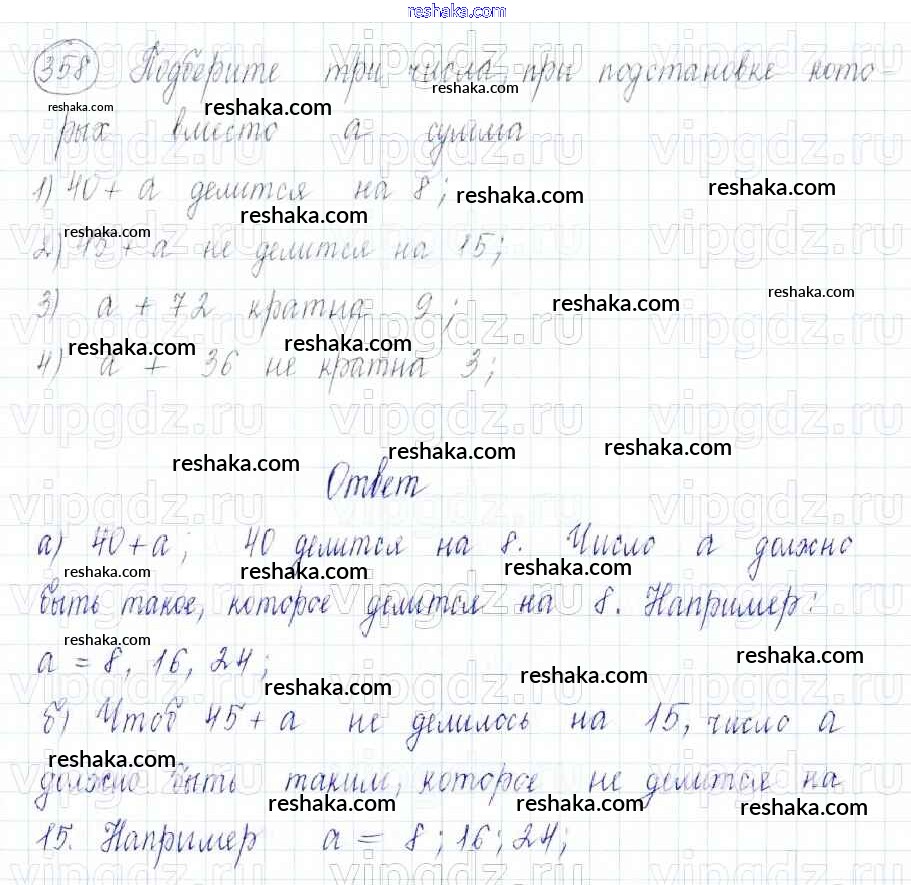 reshaka.com
358 Подберите три числа, при подстановке кото-
рых вместо а сумма
1) 40 + а делится на 8;
2) 45 + а не делится на 15;
3) а + 72 кратна 9;
4) а + 36 не кратна 3;
Ответ
а) 40+а; 40 делится на 8. Число а должно
быть такое, которое делится на 8. Например:
а = 8, 16, 24;
б) Чтоб 45 + а не делилось на 15, число а
должно быть таким, которое не делится на
15. Например а = 8; 16; 24;